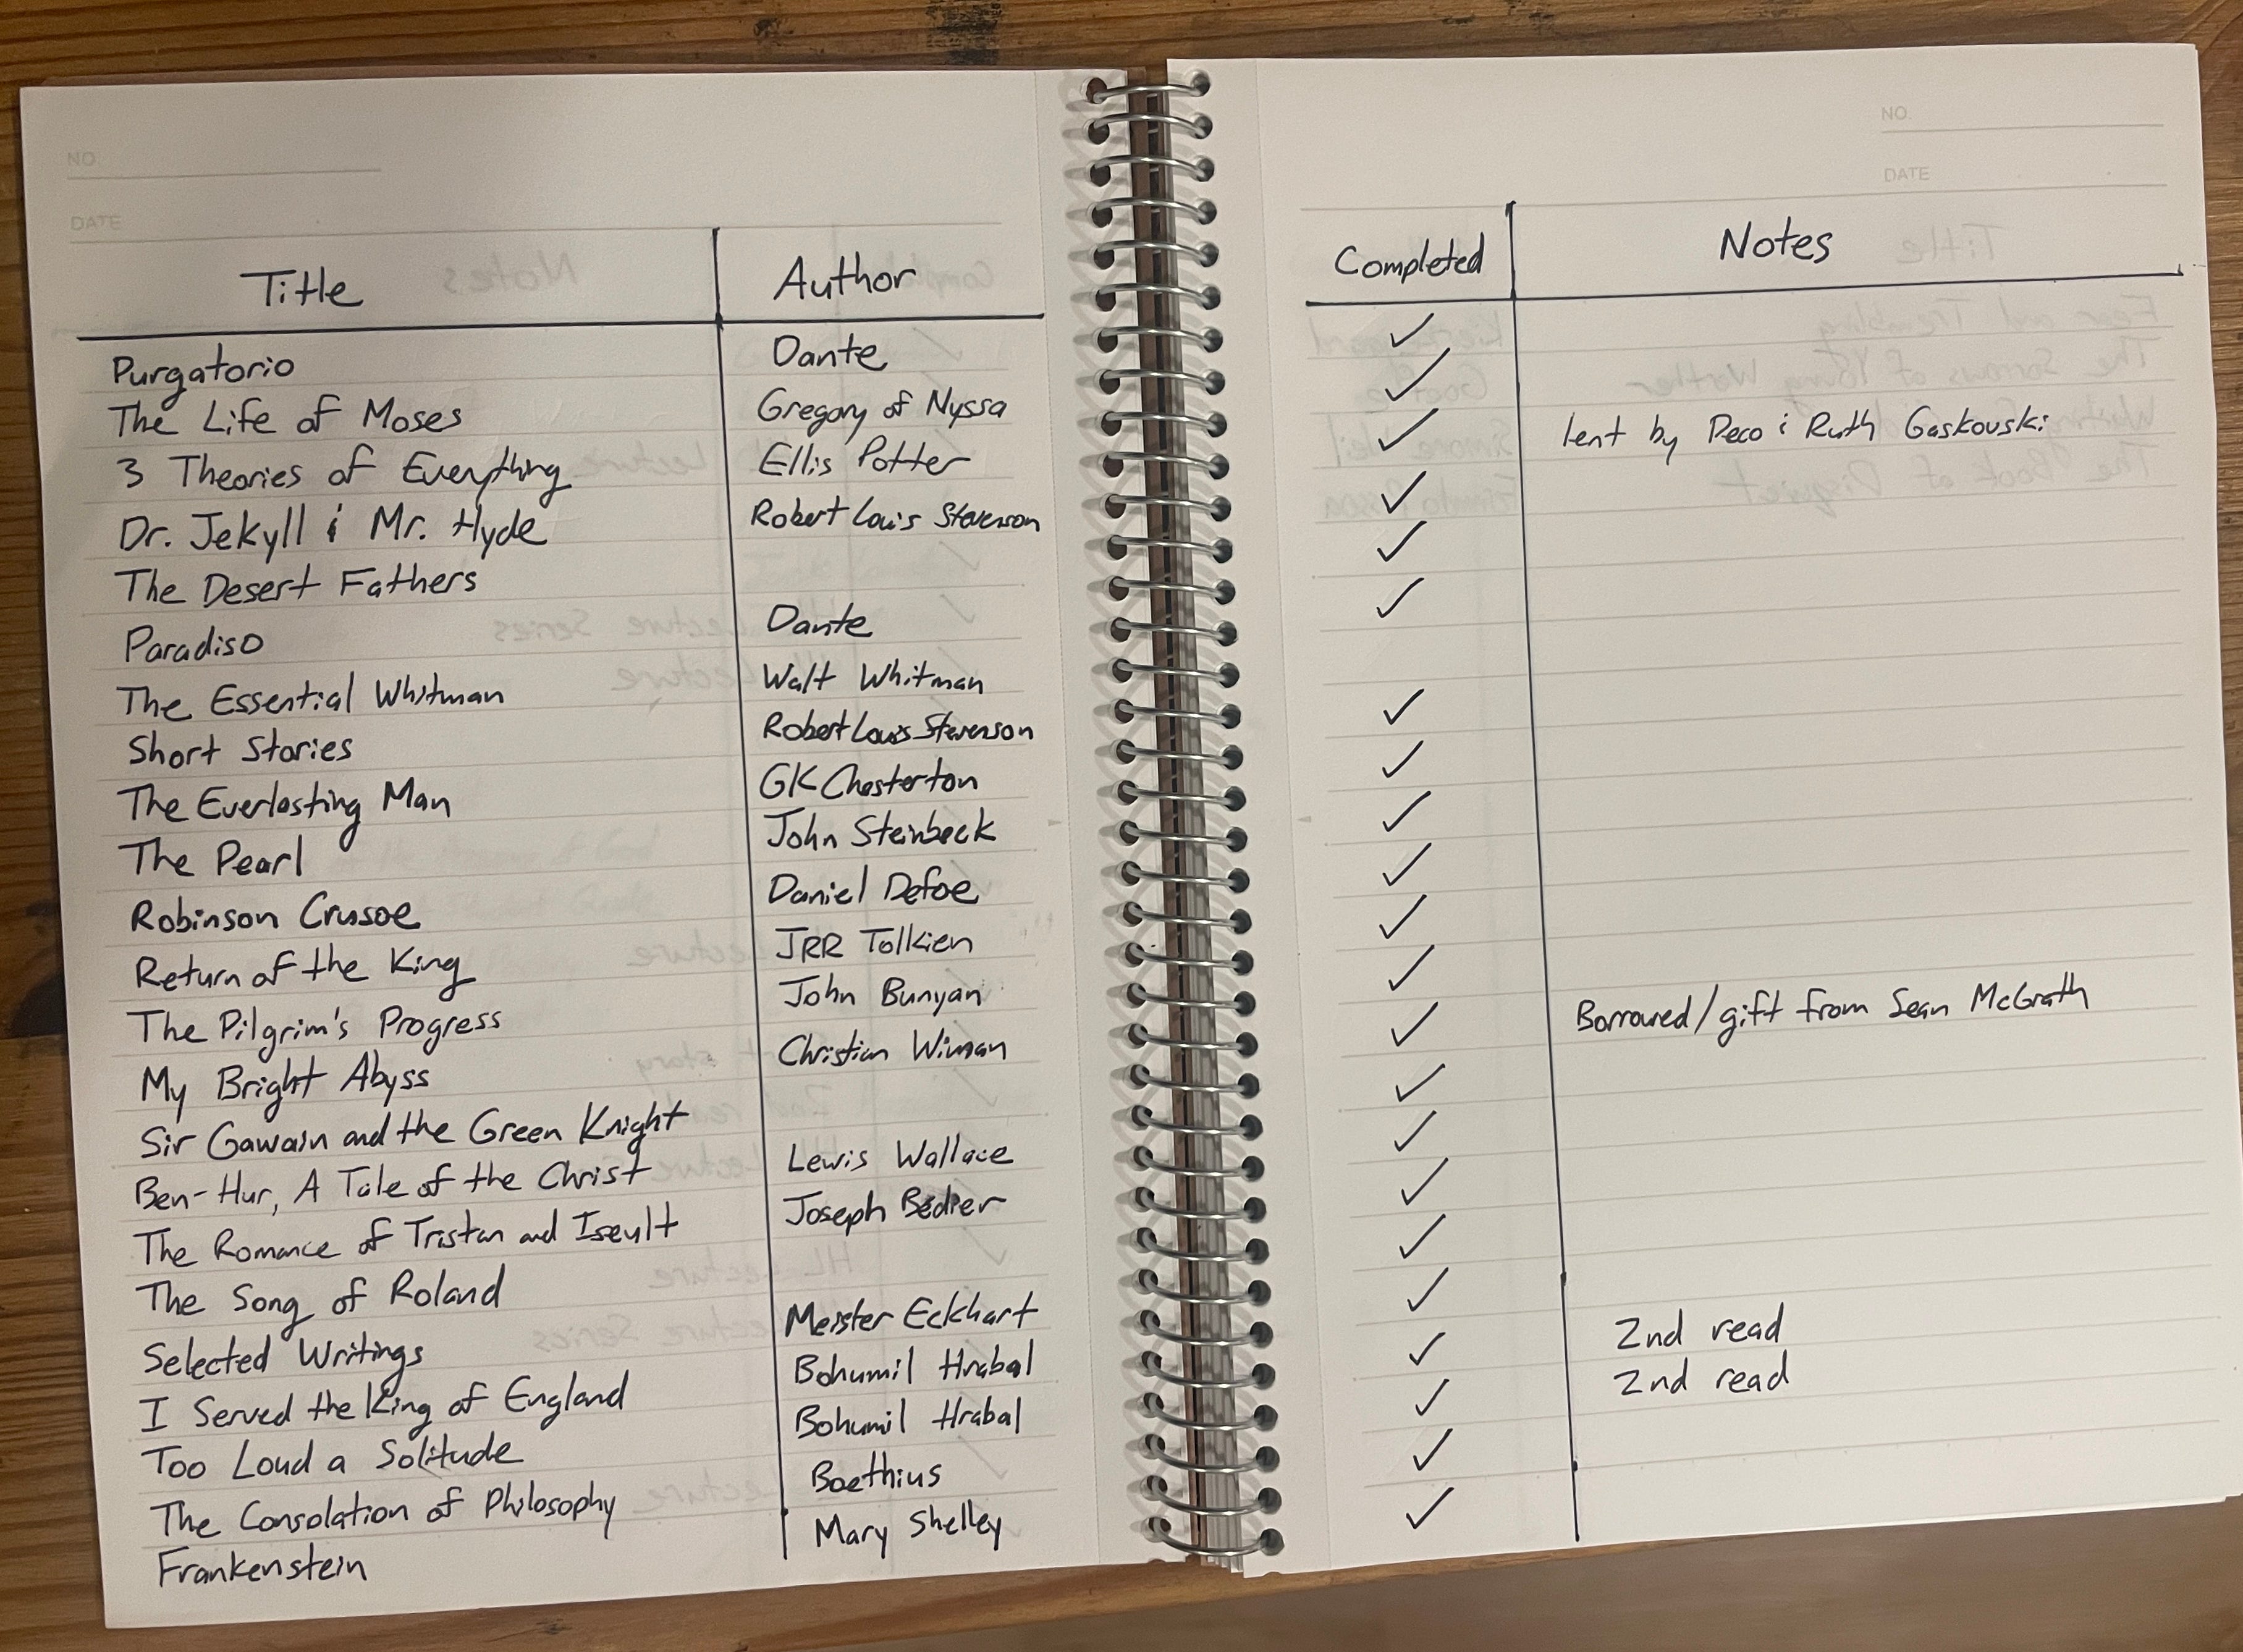 NO.
DATE
Title Author
Purgatorio Dante
The Life of Moses Gregory of Nyssa
3 Theories of Everything Ellis Potter
Dr. Jekyll & Mr. Hyde Robert Louis Stevenson
The Desert Fathers
Paradiso Dante
The Essential Whitman Walt Whitman
Short Stories Robert Louis Stevenson
The Everlasting Man GK Chesterton
The Pearl John Steinbeck
Robinson Crusoe Daniel Defoe
Return of the King JRR Tolkien
The Pilgrim's Progress John Bunyan
My Bright Abyss Christian Wiman
Sir Gawain and the Green Knight
Ben-Hur, A Tale of the Christ Lewis Wallace
The Romance of Tristan and Iseult Joseph Bédier
The Song of Roland
Selected Writings Meister Eckhart
I Served the King of England Bohumil Hrabal
Too Loud a Solitude Bohumil Hrabal
The Consolation of Philosophy Boethius
Frankenstein Mary Shelley
NO.
DATE
Completed Notes
✓
✓
✓ lent by Peco & Ruth Gaskovski
✓
✓
✓
✓
✓
✓
✓
✓
✓
✓ Borrowed/gift from Sean McGrath
✓
✓
✓
✓
✓
✓ 2nd read
✓ 2nd read
✓
✓